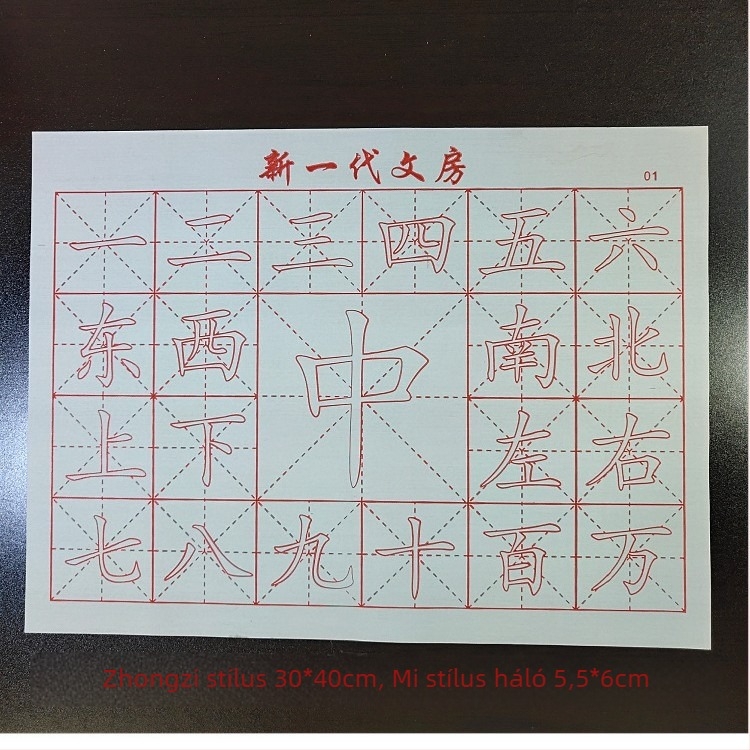 新一代文房
01
一二三四五六
东西中南北
上下左右
七八九十百万
Zhongzi stílus 30*40cm, Mi stílus háló 5,5*6cm